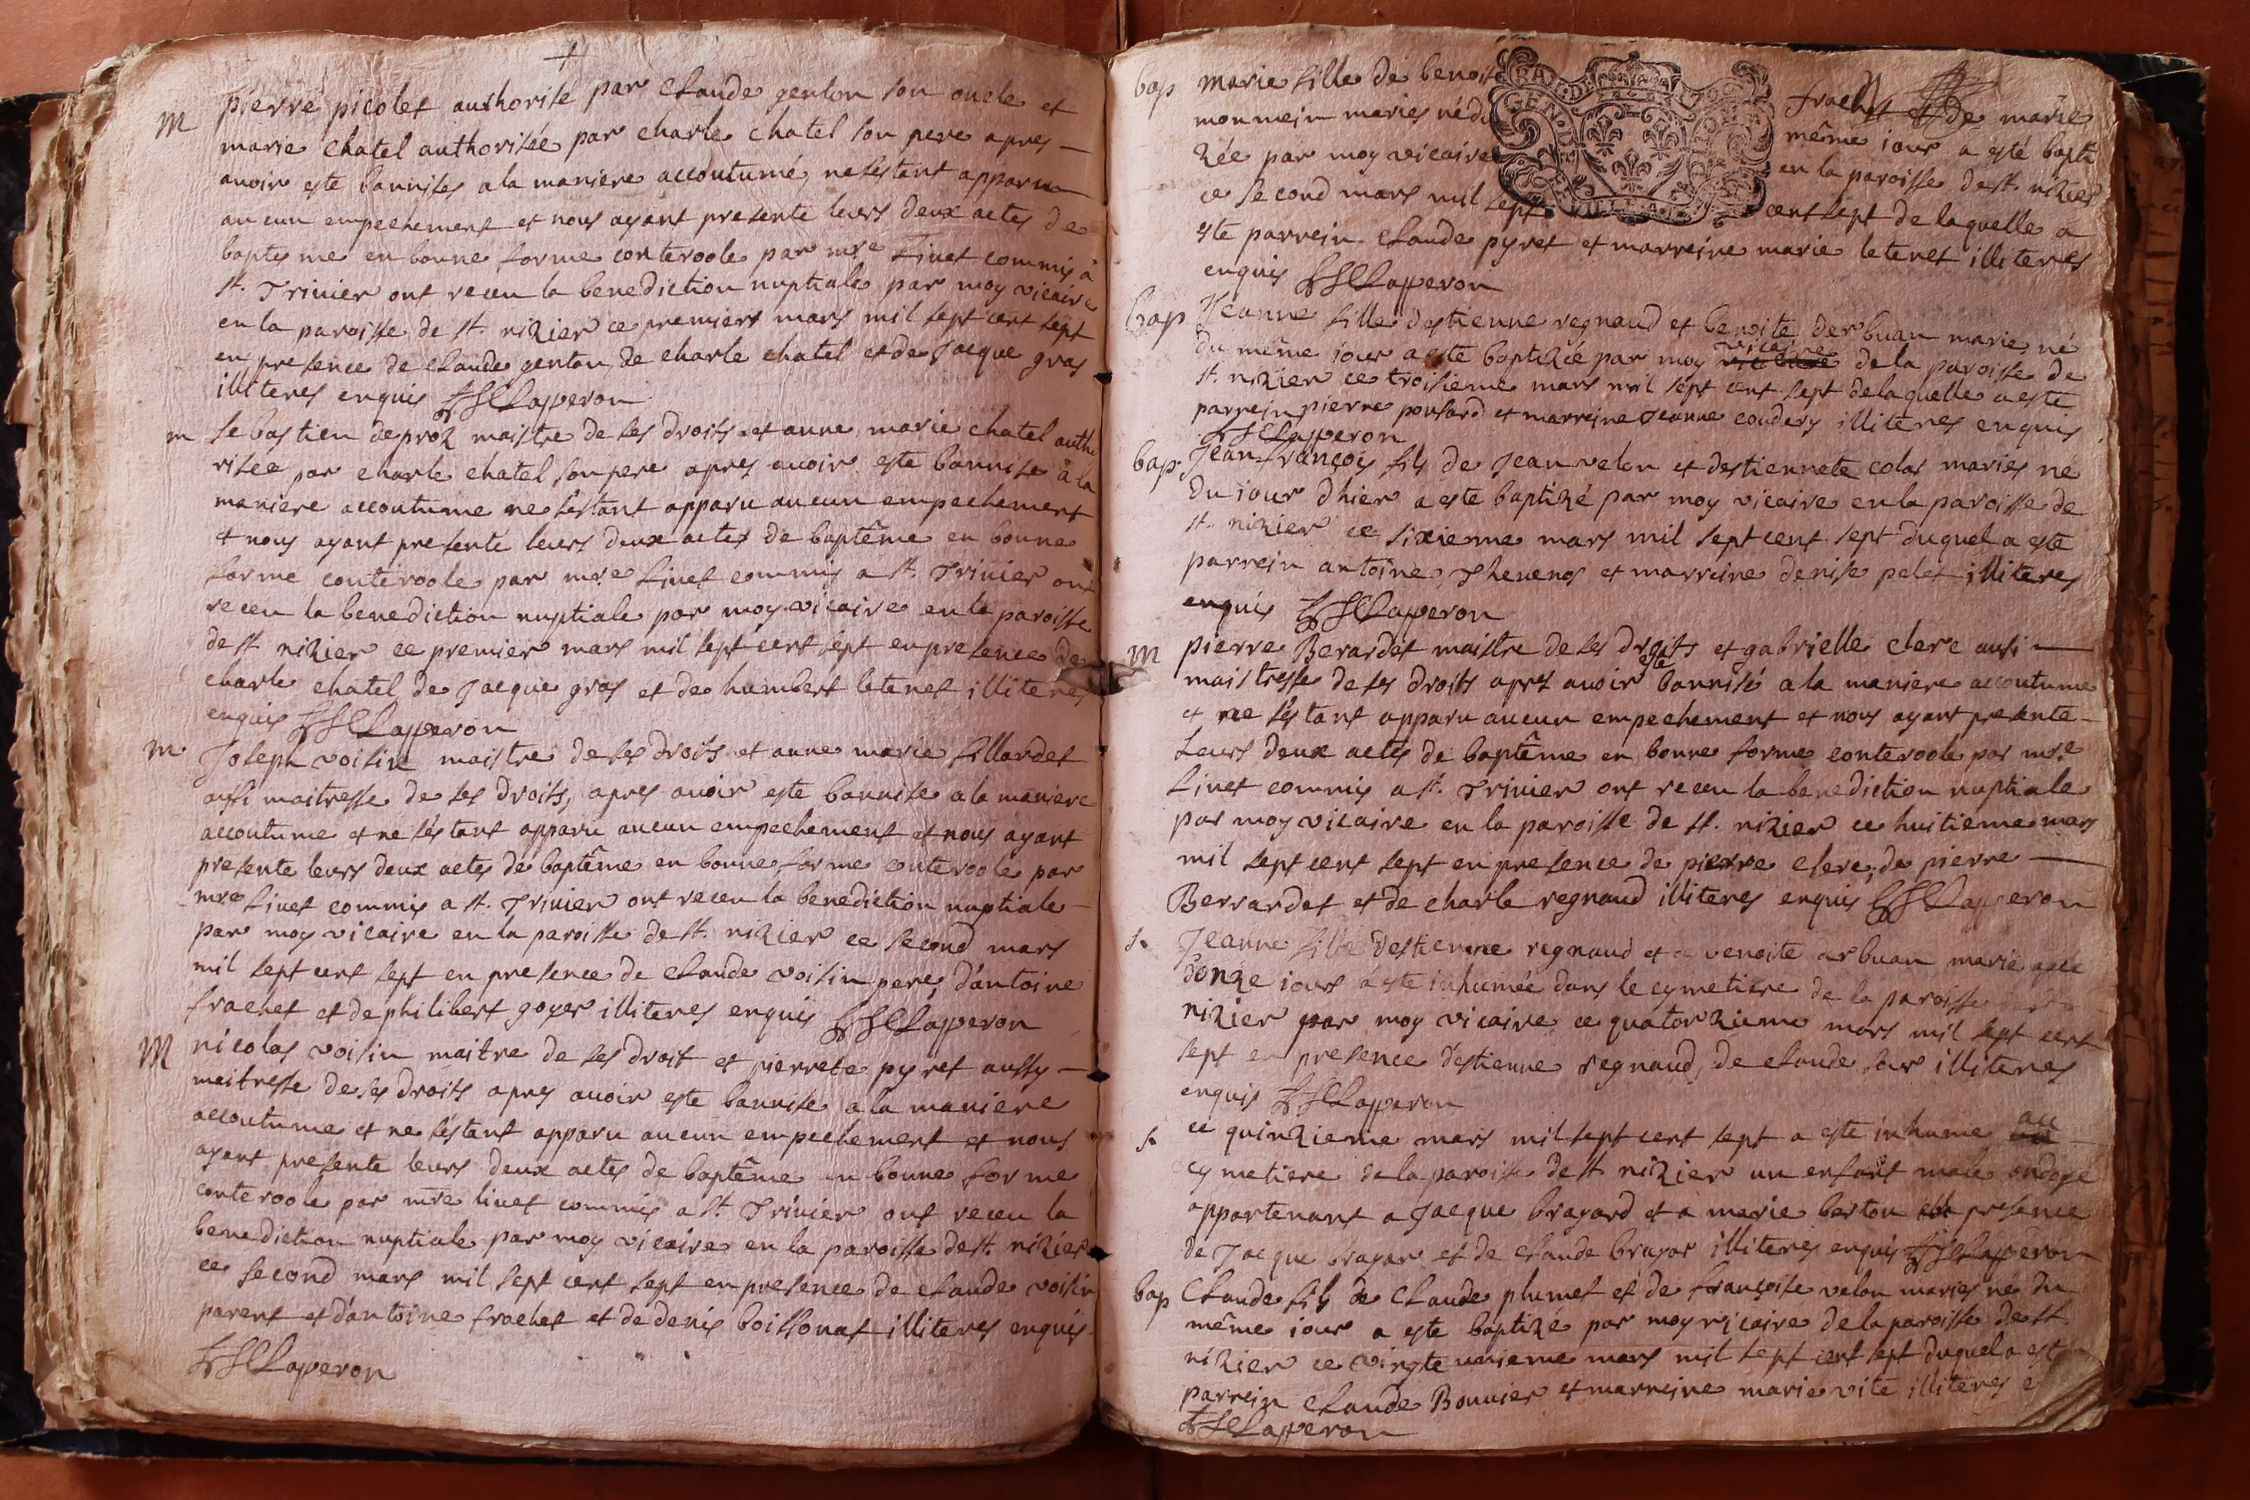 m pierre picolet authorisé par Claude genton son oncle et
marie chatel authorisée par charle chatel son pere apres
avoir esté bannises a la maniere accoutumé, ne séstant apparu
aucun empechement et nous ayant presenté leurs deux actes de
baptesme en bonne forme conteroole par mre Livet commis à
st. Trivier ont receu la benediction nuptiale par moy vicaire
en la paroisse de st. nizier ce premiers mars mil sept cent sept
en presence de Claude genton, de charle chatel et de Jacque gras
illiteres enquis Claperon
m sebastien deproz maistre de ses droits et anne marie chatel autho
risée par charle chatel son pere apres avoir esté bannise à la
maniere accoutume ne séstant apparu aucun empechement
et nous ayant presenté leurs deux actes de baptême en bonne
forme conteroole par mre Livet commis a st. Trivier ont
receu la benediction nuptiale par moy vicaire en la paroisse
de st nizier ce premier mars mil sept cent sept en presence de
charle chatel, de Jacque gras et de humbert letenet illiteres
enquis Claperon
m Joseph voisin maistre de ses droits et anne marie fillardet
aussi maitresse de ses droits, apres avoir esté bannise a la maniere
accoutume et ne séstant apparu aucun empechement et nous ayant
presente leurs deux actes de baptême en bonne forme conteroole par
mre Livet commis a st. Trivier ont receu la benediction nuptiale
par moy vicaire en la paroisse de st. nizier ce second mars
mil sept cent sept en presence de Claude voisin pere, d'antoine
frachet et de philibert goyer illiteres enquis Claperon
M nicolas voisin maitre de ses droit et pierrete pyret aussy
meitresse de ses droits apres avoir esté bannise a la maniere
accoutume et ne séstant apparu aucun empechement et nous
ayant presente leurs deux actes de baptême en bonne forme
conteroole par mre livet commis a st. Trivier ont receu la
benediction nuptiale par moy vicaire en la paroisse de st. nizier
ce second mars mil sept cent sept en presence de Claude voisin
parent et d'antoine frachet et de denis boissonat illiteres enquis
Claperon
bap marie fille de benoist frachet et de marie
monmein maries né du même iour a esté bapti
zée par moy vicaire en la paroisse de st. nizier
ce second mars mil sept cent sept de laquelle a
esté parrein Claude pyret et marreine marie letenet illiteres
enquis Claperon
GEN
bap Jeanne fille destienne regnaud et benoite derbuan marie, né
du même iour a esté baptizée par moy vicaire de la paroisse de
st. nizier ce troisieme mars mil sept cent sept de laquelle a esté
parrein pierre ponsard et marreine Jeanne coudery illiteres enquis
Claperon
bap Jean françois fils de Jean velon et destiennete colas maries né
du iour d'hier a esté baptizé par moy vicaire en la paroisse de
st. nizier ce sixieme mars mil sept cent sept duquel a esté
parrein antoine Thevenos et marreine denise pelet illiteres
enquis Claperon
m pierre Berardet maistre de ses droits et gabrielle clerc ausi
maistresse de ses droits apres avoir esté bannisé a la maniere accoutume
et ne séstant apparu aucun empechement et nous ayant presente
Leurs deux actes de baptême en bonne forme conteroole par mre
Livet commis a st. Trivier ont receu la benediction nuptiale
par moy vicaire en la paroisse de st. nizier ce huitieme mars
mil sept cent sept en presence de pierre clerc, de pierre
Berrardet et de charle regnaud illiteres enquis Claperon
s. Jeanne fille destienne regnaud et de benoite arbuan marie agée
d'onze iours a esté inhumée dans le cymetiere de la paroisse
nizier par moy vicaire, ce quatorzieme mars mil sept cent
sept en presence d'estienne regnaud, de claude illiteres
enquis Claperon
s. ce quinzieme mars mil sept cent sept a este inhume au
cymetiere de la paroisse de st nizier un enfant male ondoyé
appartenant a Jacque brayard et a marie berton presence
de Jacque brayar et de Claude brayar illiteres enquis Claperon
bap Claude fils de Claude plumet et de françoise velon maries né du
même iour a este baptizé par moy vicaire de la paroisse de st.
nizier ce vingte unieme mars mil sept cent sept duquel a est
parrein Claude Bonnier et marreine marie vite illiteres e
Claperon